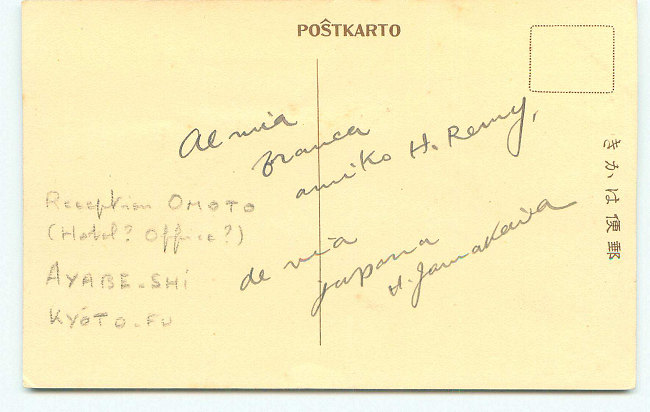 POŜTKARTO
Al mia
franca
amiko H. Remy,
de via
japana
H. Jamakaŭa
Reception OMOTO
(Hotel? Office?)
AYABE-SHI
KYÓTO-FU
きかは便郵